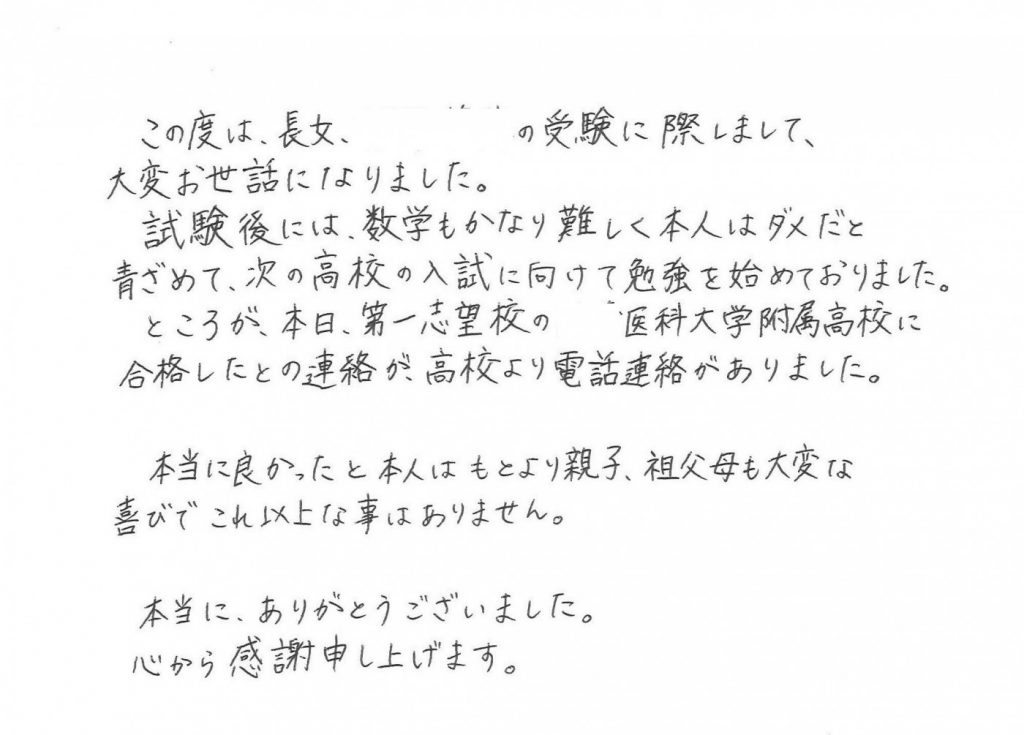 この度は、長女、 の受験に際しまして、
大変お世話になりました。
試験後には、数学もかなり難しく本人はダメだと
青ざめて、次の高校の入試に向けて勉強を始めておりました。
ところが、本日、第一志望校の 医科大学附属高校に
合格したとの連絡が、高校より電話連絡がありました。
本当に良かったと本人はもとより親子、祖父母も大変な
喜びでこれ以上な事はありません。
本当に、ありがとうございました。
心から感謝申し上げます。